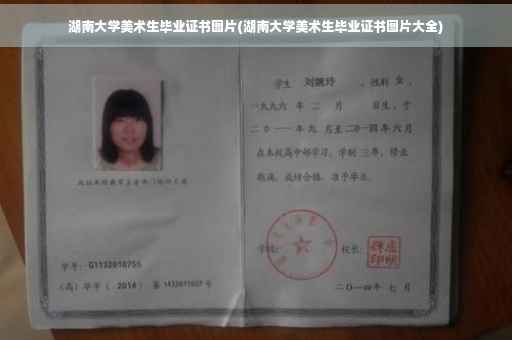 湖南大学美术生毕业证书图片(湖南大学美术生毕业证书图片大全)
学生 刘婉玲 ，性别 女 ，
一九九六 年 二 月 日生，于
二〇一一 年 九 月至 二〇一四 年 六 月
在本校高中部学习，学制 三 年，修业
期满，成绩合格，准予毕业。
学号：G1132010755
(高) 毕字 ( 2014 ) 第 1432011007 号
学校：
校长：
二〇一四年 七 月